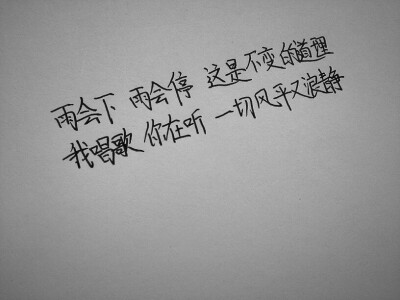 雨会下 雨会停 这是不变的道理
我唱歌 你在听 一切风平又浪静